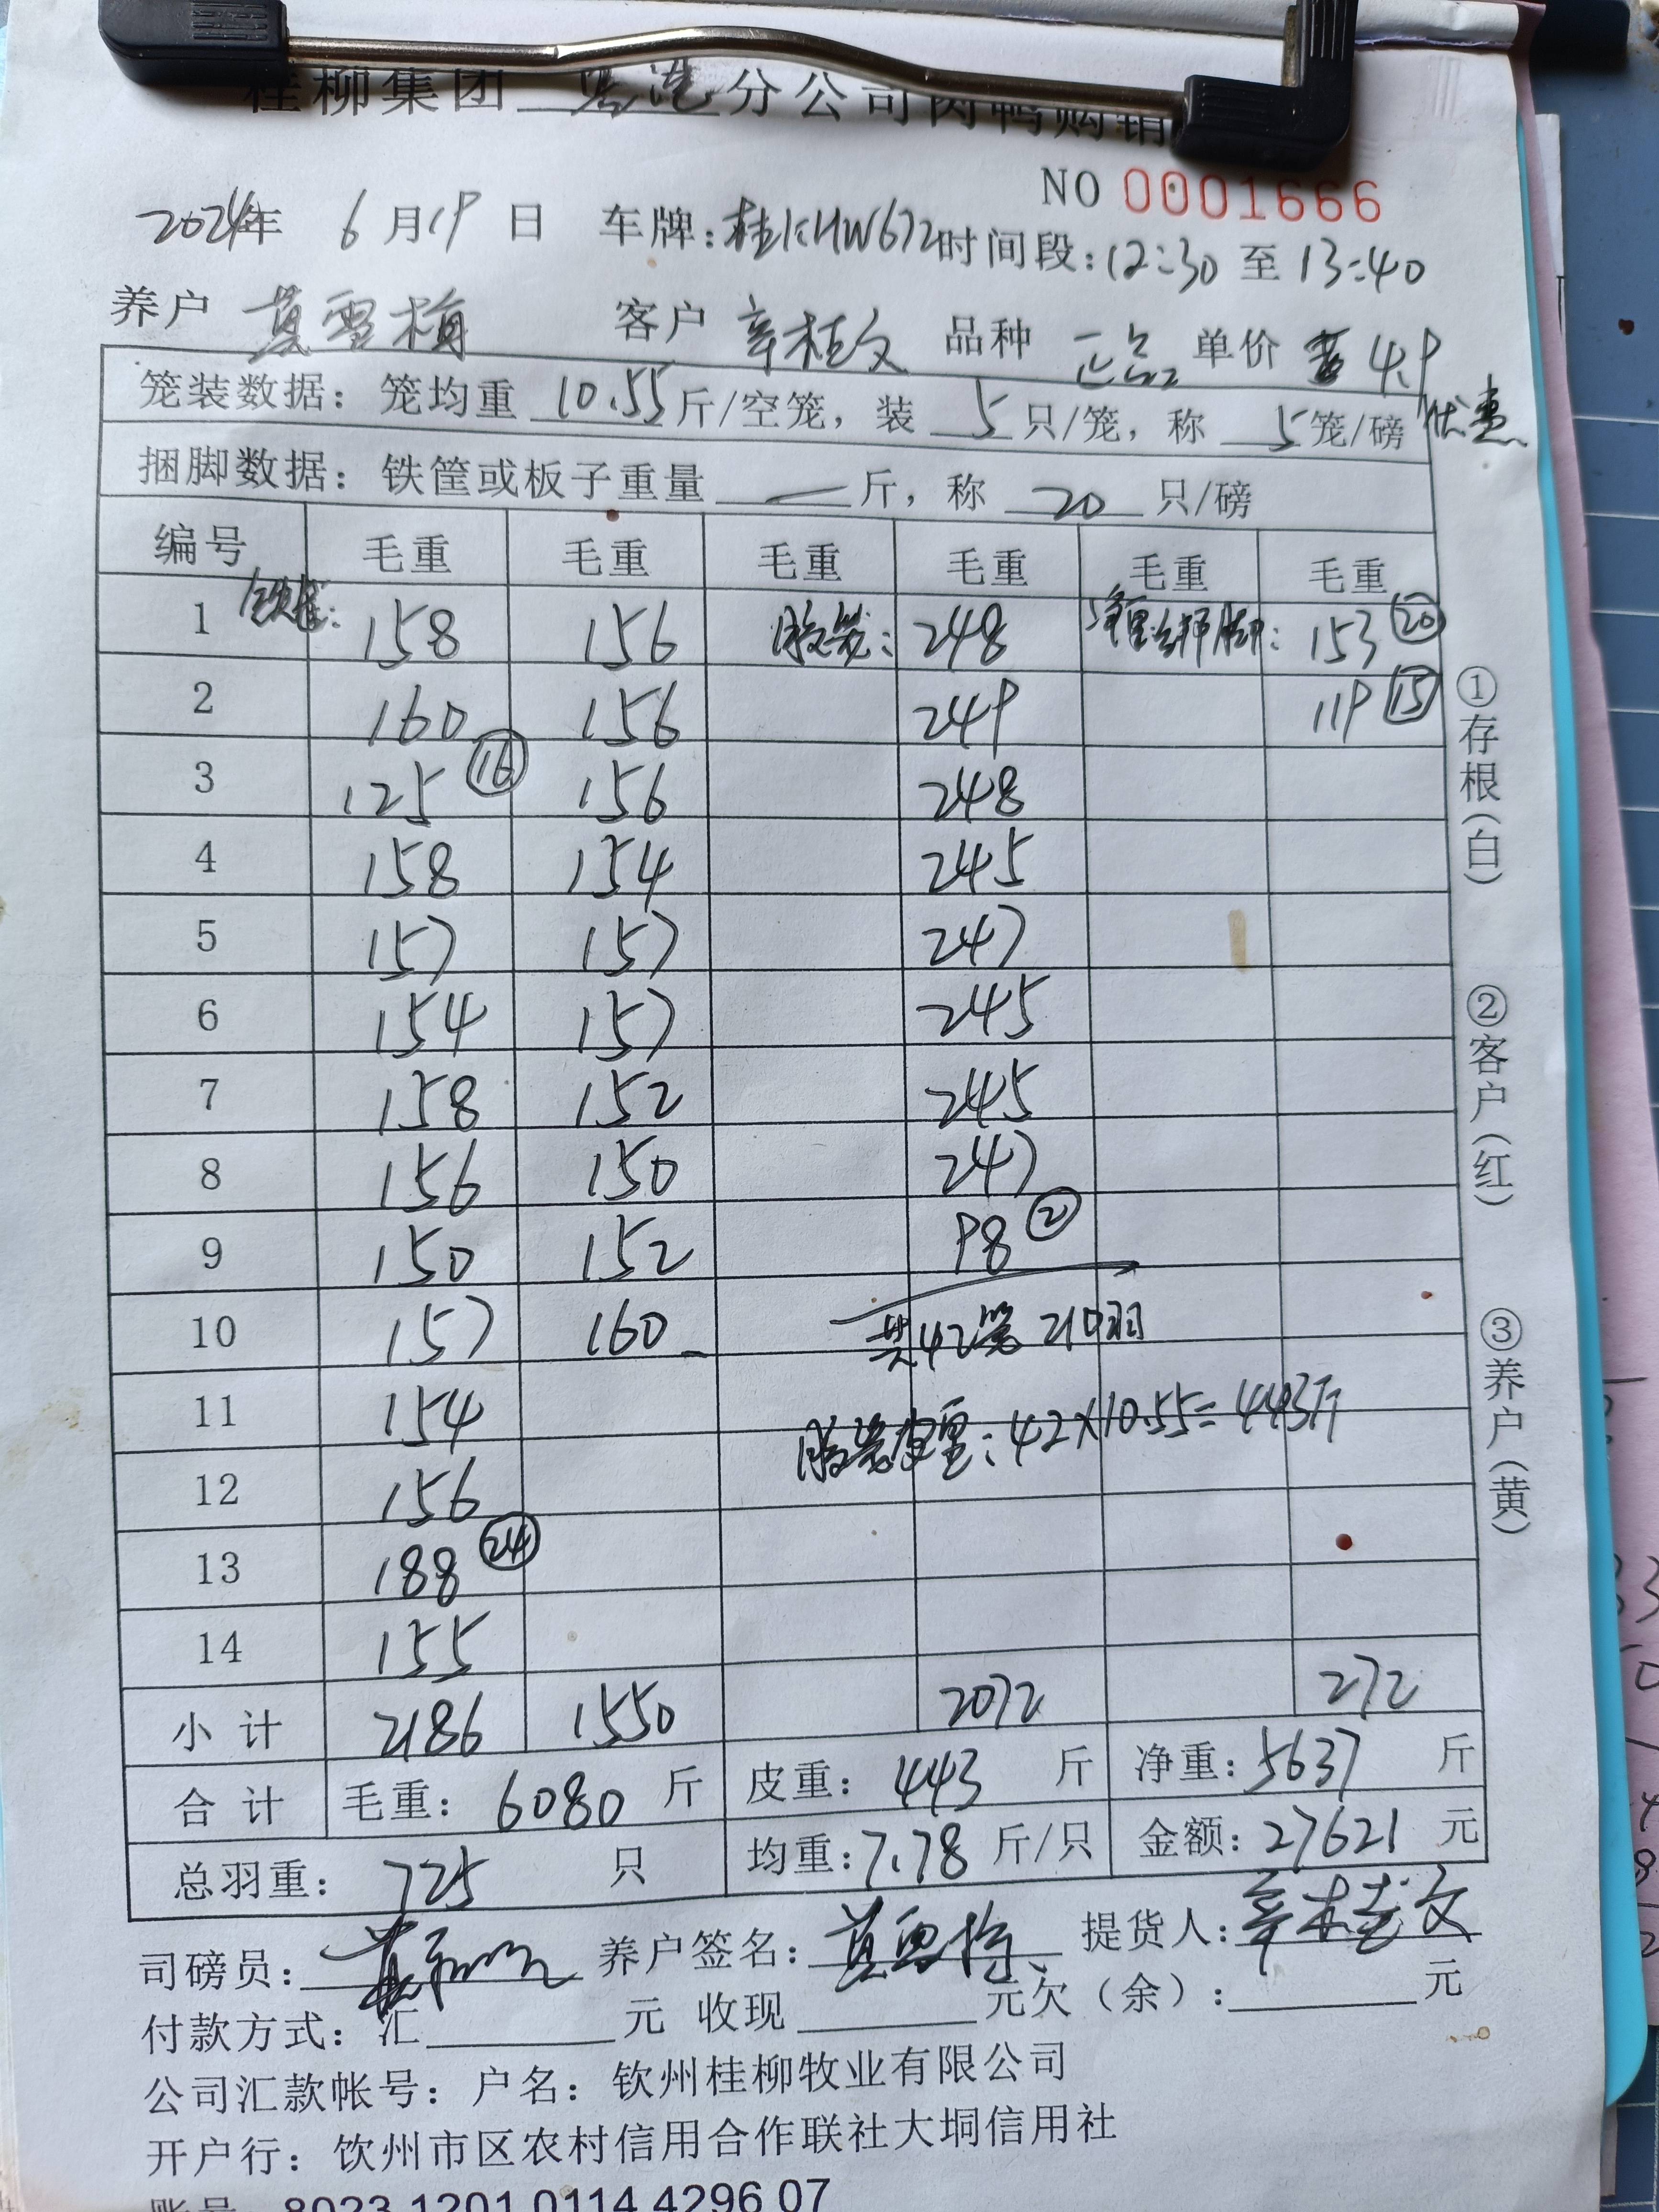 桂柳集团 贵港 分公司肉鸭购销
NO 0001666
2024年 6月19日 车牌:桂KHW672 时间段:12:30 至 13:40
养户 莫雪梅 客户 辛桂文 品种 正品 单价 4.9
优惠
笼装数据: 笼均重 10.55 斤/空笼, 装 5 只/笼, 称 5 笼/磅
捆脚数据: 铁筐或板子重量 — 斤, 称 20 只/磅
编号 毛重 毛重 毛重 毛重 毛重 毛重
1 铁筐: 158 156 胶笼: 248 净重绑脚: 153 ⑳
2 160 156 249 119 ⑮
3 125 ⑯ 156 248
4 158 154 245
5 157 157 247
6 154 157 245
7 158 152 245
8 156 150 247
9 150 152 98 ②
10 157 160 共42笼 210羽
11 154 胶笼皮重: 42×10.55=443斤
12 156
13 188 ㉔
14 155
小计 2186 1550 2072 272
合计 毛重: 6080 斤 皮重: 443 斤 净重: 5637 斤
总羽重: 725 只 均重: 7.78 斤/只 金额: 27621 元
司磅员: 养户签名: 莫雪梅 提货人: 辛桂文
付款方式: 汇 元 收现 元欠(余): 元
公司汇款帐号: 户名: 钦州桂柳牧业有限公司
开户行: 钦州市区农村信用合作联社大垌信用社
账号 8023 1201 0114 4296 07
①存根(白)
②客户(红)
③养户(黄)